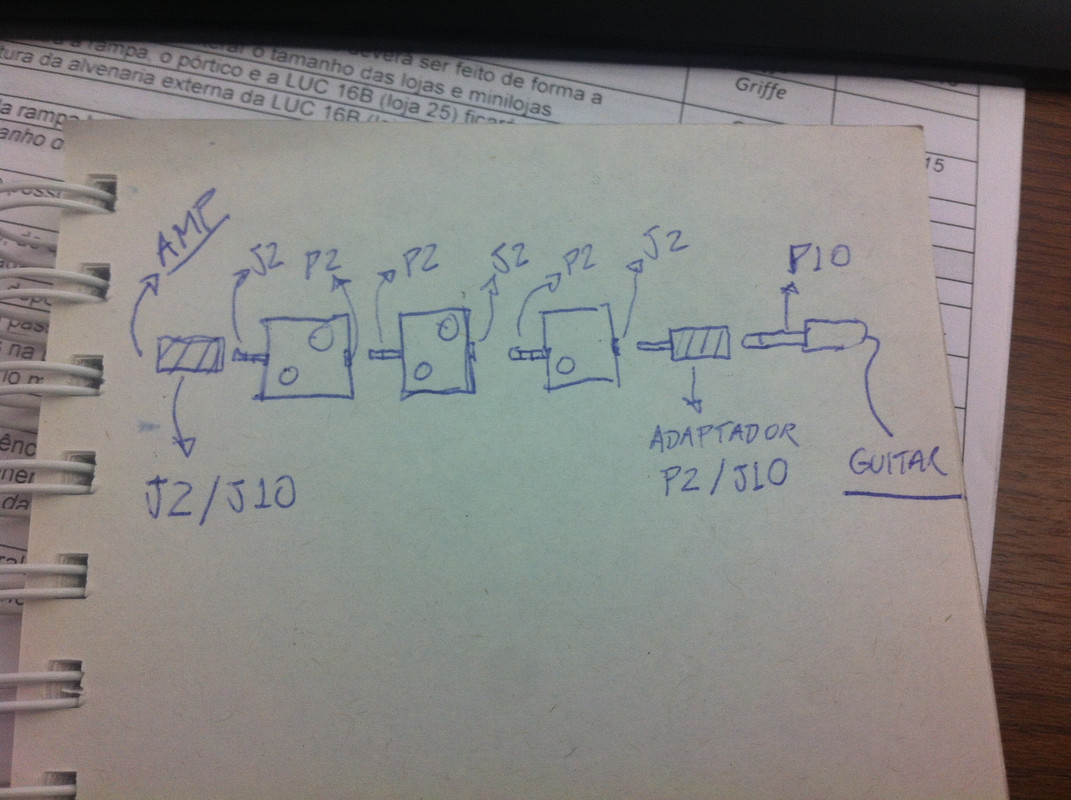 deverá ser feito de forma a
o tamanho das lojas e minilojas
rampa, o pórtico e a LUC 16B (loja 25)
da alvenaria externa da LUC 16B
Griffe
15
AMP
J2
P2
P2
J2
P2
J2
P10
J2/J10
ADAPTADOR
P2/J10
GUITAR